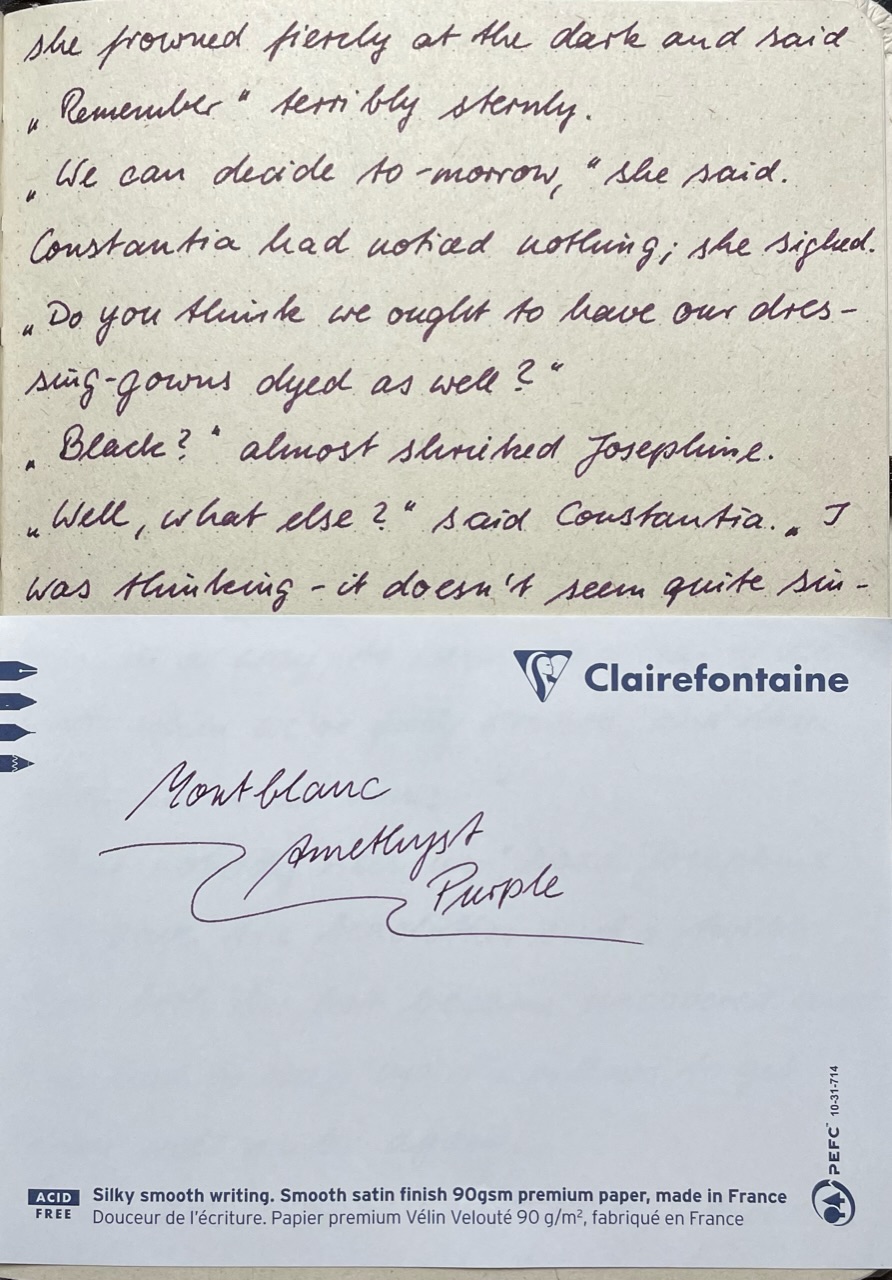 she frowned fiercely at the dark and said
„Remember“ terribly sternly.
„We can decide to-morrow,“ she said.
Constantia had noticed nothing; she sighed.
„Do you think we ought to have our dres-
sing-gowns dyed as well?“
„Black?“ almost shrieked Josephine.
„Well, what else?“ said Constantia. „I
was thinking - it doesn't seem quite sin-
Clairefontaine
Montblanc
Amethyst
Purple
PEFC™ 10-31-714
ACID FREE
Silky smooth writing. Smooth satin finish 90gsm premium paper, made in France
Douceur de l'écriture. Papier premium Vélin Velouté 90 g/m², fabriqué en France